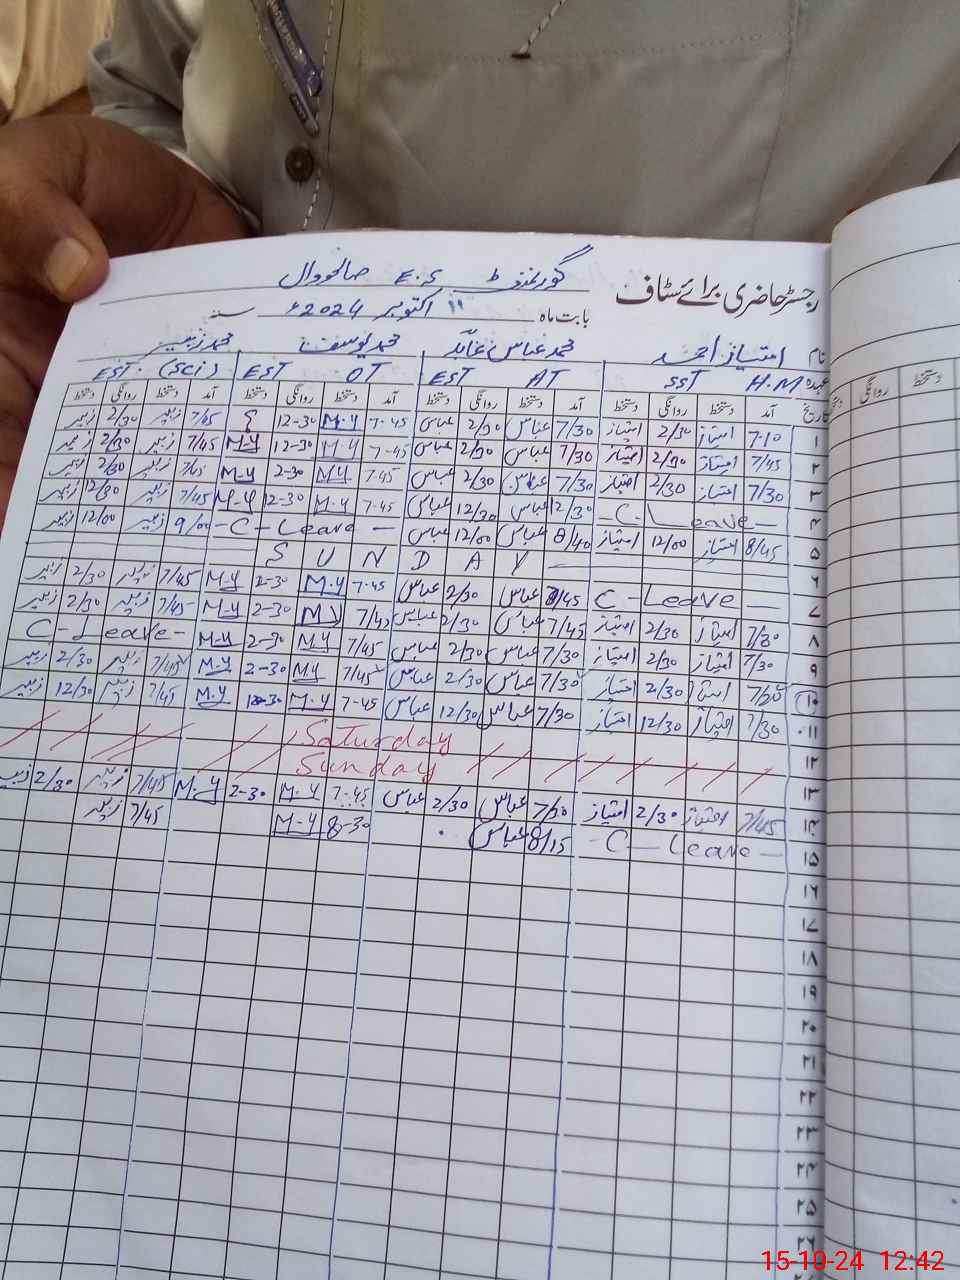 رجسٹر حاضری برائے سٹاف
گورنمنٹ E.S صالحووال
بابت ماہ 11 اکتوبر 2024ء سنہ
نام امتیاز احمد محمد عباس عابد محمد یوسف محمد زبیر
عہدہ H.M SST AT EST OT EST (Sci) EST
تاریخ آمد دستخط روانگی دستخط آمد دستخط روانگی دستخط آمد دستخط روانگی دستخط آمد دستخط روانگی دستخط
۱ 7-10 امتیاز 2/30 امتیاز 7/30 عباس 2/30 عباس 7-45 M-Y 12-30 7/45 زبیر 2/30 زبیر
۲ 7/45 امتیاز 2/30 امتیاز 7/30 عباس 2/30 عباس 7-45 M-Y 12-30 M-Y 7/45 زبیر 2/30 زبیر
۳ 7/30 امتیاز 2/30 امتیاز 7/30 عباس 2/30 عباس 7-45 M-Y 2-30 M-Y 7/45 زبیر 2/30 زبیر
۴ -C-Leave- 7/30 عباس 12/30 عباس 7-45 M-Y 12-30 M-Y 7/45 زبیر 12/30 زبیر
۵ 8/45 امتیاز 12/00 امتیاز 8/40 عباس 12/00 عباس -C-Leave- 9/00 زبیر 12/00 زبیر
۶ SUNDAY
۷ C-Leave- 7/45 عباس 2/30 عباس 7-45 M-Y 2-30 M-Y 7/45 زبیر 2/30 زبیر
۸ 7/30 امتیاز 2/30 امتیاز 7/45 عباس 2/30 عباس 7/45 MY 2-30 M-Y 7/45 زبیر 2/30 زبیر
۹ 7/30 امتیاز 2/30 امتیاز 7/30 عباس 2/30 عباس 7/45 M-Y 2-30 M-Y C-Leave-
۱۰ 7/20 امتیاز 2/30 امتیاز 7/30 عباس 2/30 عباس 7/45 MY 2-30 M-Y 7/45 زبیر 2/30 زبیر
۱۱ 7/30 امتیاز 12/30 امتیاز 7/30 عباس 12/30 عباس 7-45 M-Y 12-30 M-Y 7/45 زبیر 12/30 زبیر
۱۲ Saturday
۱۳ Sunday
۱۴ 7/45 امتیاز 2/30 امتیاز 7/30 عباس 2/30 عباس 7-45 M-Y 2-30 M-Y 7/45 زبیر 2/30 زبیر
۱۵ -C-Leave- 8/15 عباس 8-30 M-Y 7/45 زبیر
۱۶
۱۷
۱۸
۱۹
۲۰
۲۱
۲۲
۲۳
۲۴
۲۵
۲۶
روانگی دستخط
15-10-24 12:42